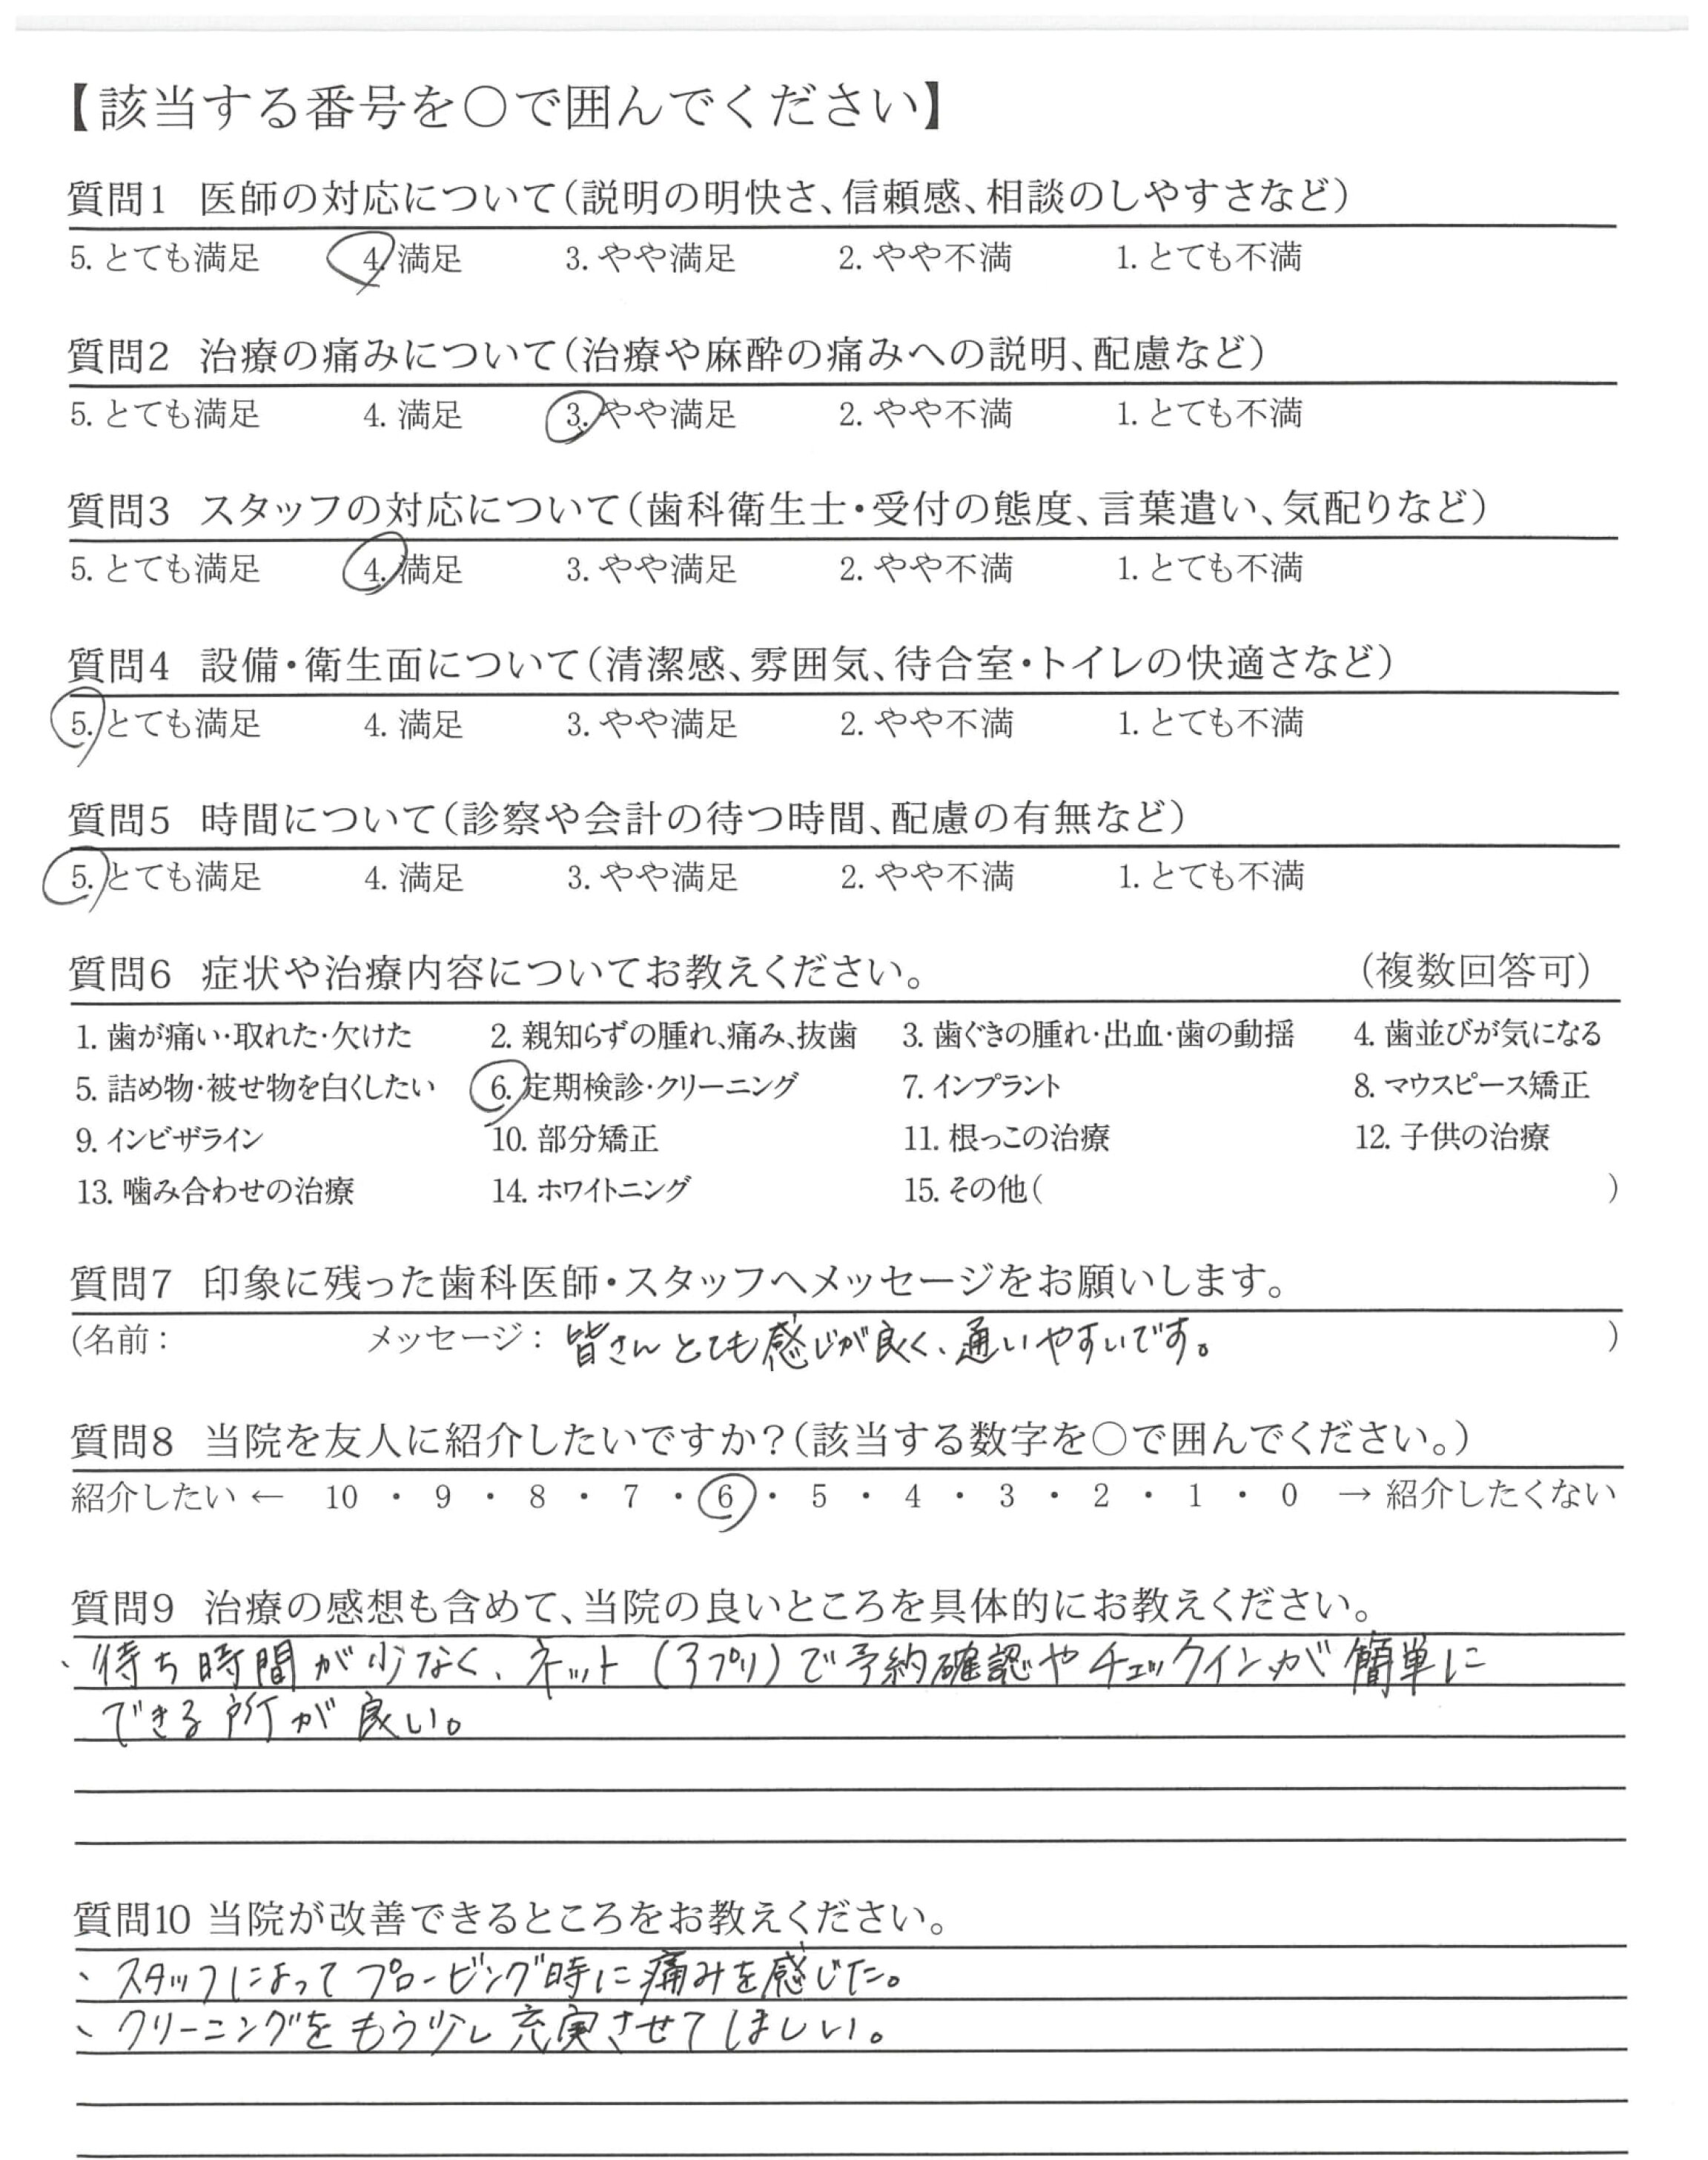 【該当する番号を○で囲んでください】
質問1 医師の対応について(説明の明快さ、信頼感、相談のしやすさなど)
5. とても満足 4. 満足 3. やや満足 2. やや不満 1. とても不満
質問2 治療の痛みについて(治療や麻酔の痛みへの説明、配慮など)
5. とても満足 4. 満足 3. やや満足 2. やや不満 1. とても不満
質問3 スタッフの対応について(歯科衛生士・受付の態度、言葉遣い、気配りなど)
5. とても満足 4. 満足 3. やや満足 2. やや不満 1. とても不満
質問4 設備・衛生面について(清潔感、雰囲気、待合室・トイレの快適さなど)
5. とても満足 4. 満足 3. やや満足 2. やや不満 1. とても不満
質問5 時間について(診察や会計の待つ時間、配慮の有無など)
5. とても満足 4. 満足 3. やや満足 2. やや不満 1. とても不満
質問6 症状や治療内容についてお教えください。 (複数回答可)
1. 歯が痛い・取れた・欠けた 2. 親知らずの腫れ、痛み、抜歯 3. 歯ぐきの腫れ・出血・歯の動揺 4. 歯並びが気になる
5. 詰め物・被せ物を白くしたい 6. 定期検診・クリーニング 7. インプラント 8. マウスピース矯正
9. インビザライン 10. 部分矯正 11. 根っこの治療 12. 子供の治療
13. 噛み合わせの治療 14. ホワイトニング 15. その他( )
質問7 印象に残った歯科医師・スタッフへメッセージをお願いします。
(名前： メッセージ：皆さんとても感じが良く、通いやすいです。 )
質問8 当院を友人に紹介したいですか？(該当する数字を○で囲んでください。)
紹介したい ← 10 ・ 9 ・ 8 ・ 7 ・ 6 ・ 5 ・ 4 ・ 3 ・ 2 ・ 1 ・ 0 → 紹介したくない
質問9 治療の感想も含めて、当院の良いところを具体的にお教えください。
、待ち時間が少なく、ネット(アプリ)で予約確認やチェックインが簡単に
できる所が良い。
質問10 当院が改善できるところをお教えください。
、スタッフによってプロービング時に痛みを感じた。
、クリーニングをもう少し充実させてほしい。